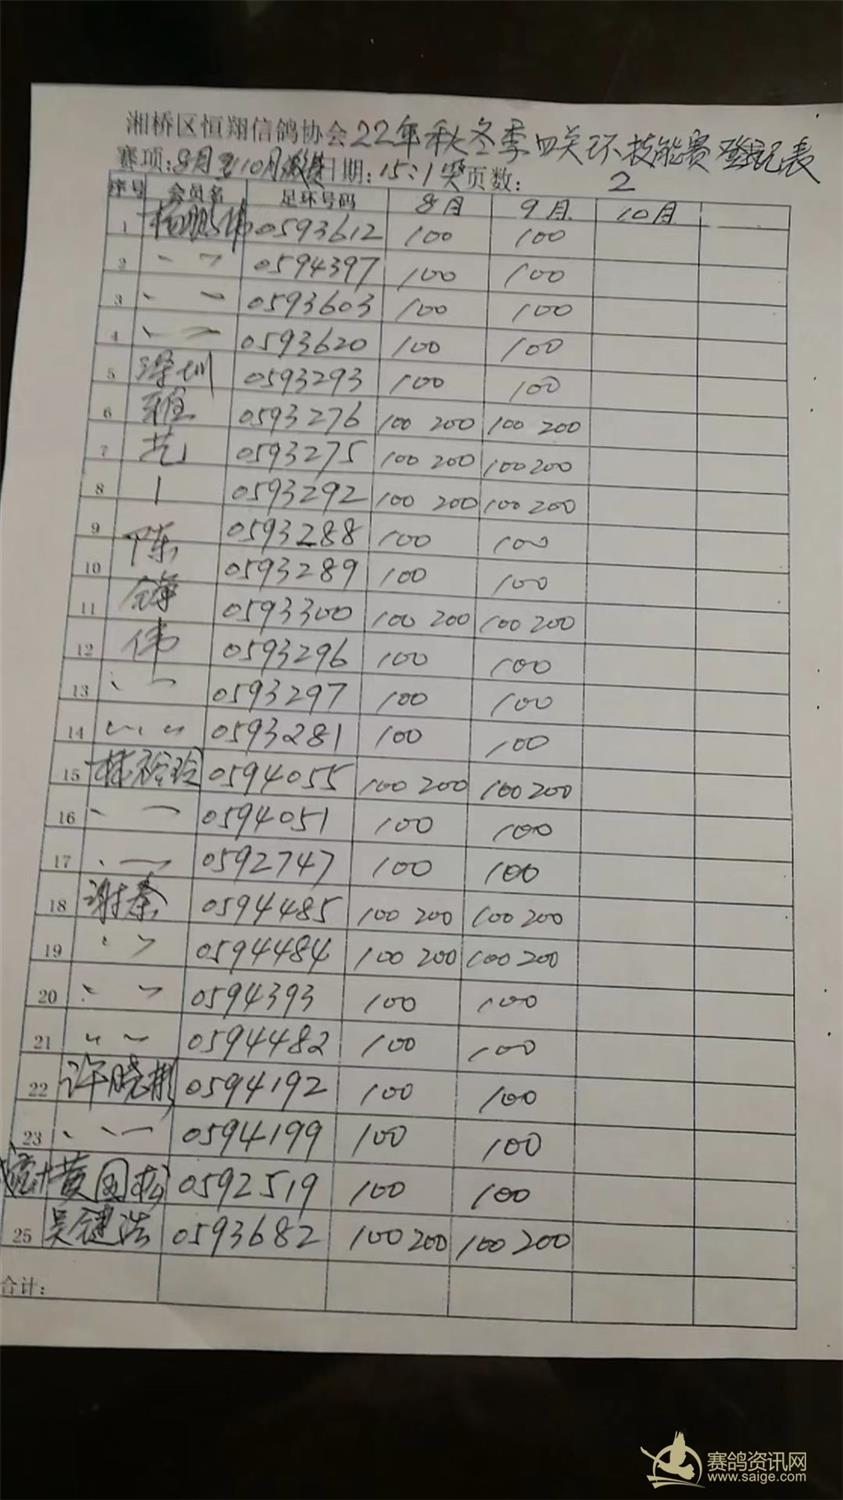 湘桥区恒翔信鸽协会22年秋冬季四关环技能赛登记表
赛项:8月至10月 日期:15:1奖 页数: 2
序号 会员名 足环号码 8月 9月 10月
1 0593612 100 100
2 〃 0594397 100 100
3 〃 0593603 100 100
4 〃 0593620 100 100
5 深圳 0593293 100 100
6 雅 0593276 100 200 100 200
7 艺 0593275 100 200 100 200
8 0593292 100 200 100 200
9 陈 0593288 100 100
10 0593289 100 100
11 锋 0593300 100 200 100 200
12 伟 0593296 100 100
13 〃 0593297 100 100
14 〃 0593281 100 100
15 林裕玲 0594055 100 200 100 200
16 〃 0594051 100 100
17 〃 0592747 100 100
18 谢秦 0594485 100 200 100 200
19 〃 0594484 100 200 100 200
20 〃 0594393 100 100
21 〃 0594482 100 100
22 许晓彬 0594192 100 100
23 〃 0594199 100 100
黄国松 0592519 100 100
25 吴键浩 0593682 100 200 100 200
合计:
赛鸽资讯网
www.saige.com